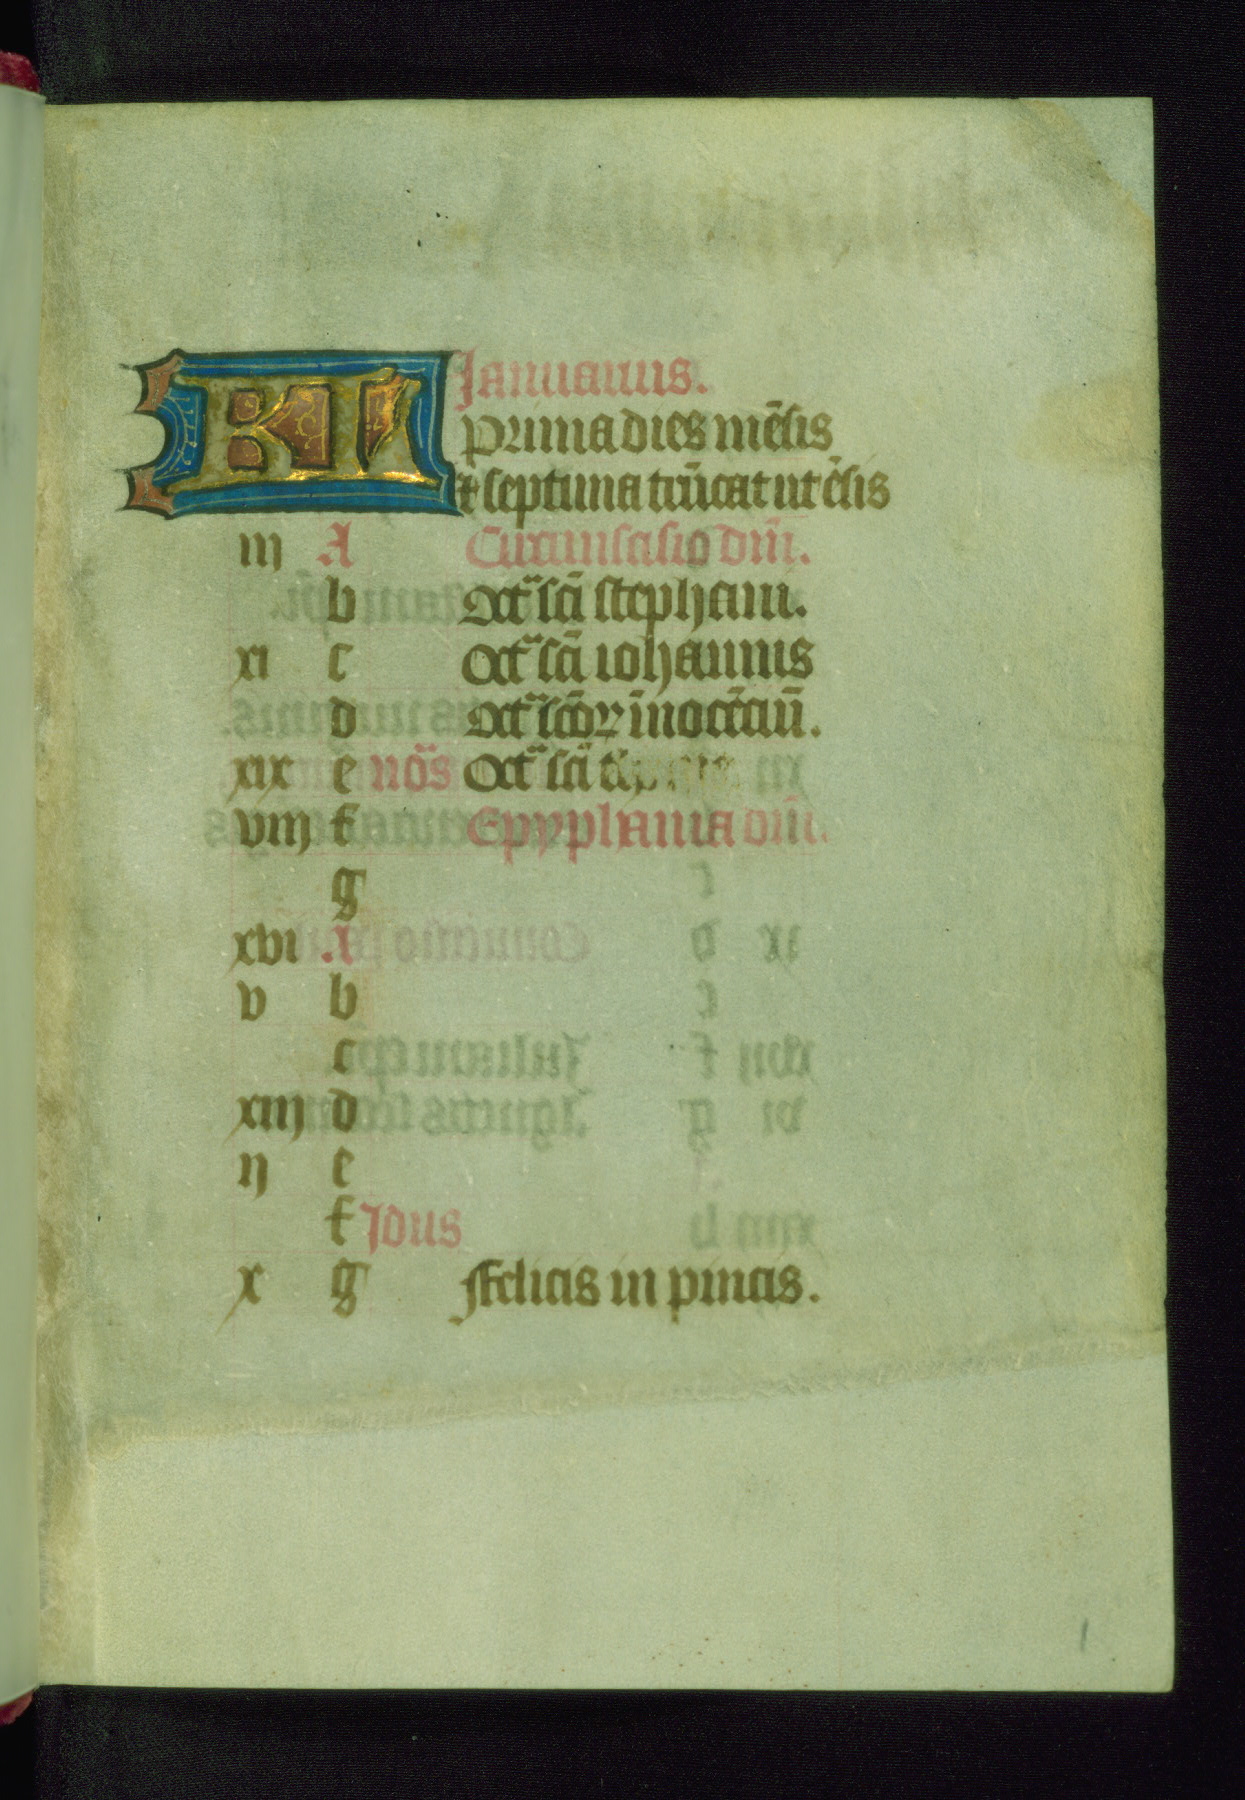 KL Januarius.
Prima dies mēsis
et septima trūcat ut ēsis
iii A Circūcisio dn̄i.
b Oct͛ scī stephani.
xi c Oct͛ scī iohannis
d Oct͛ sctōꝝ īnocētiū.
xix e nōs Oct͛ scī
viii f Epyphania dn̄i.
g
xvi A
v b
c
xiii d
ii e
f Idus
x g Felicis in pincis.
1